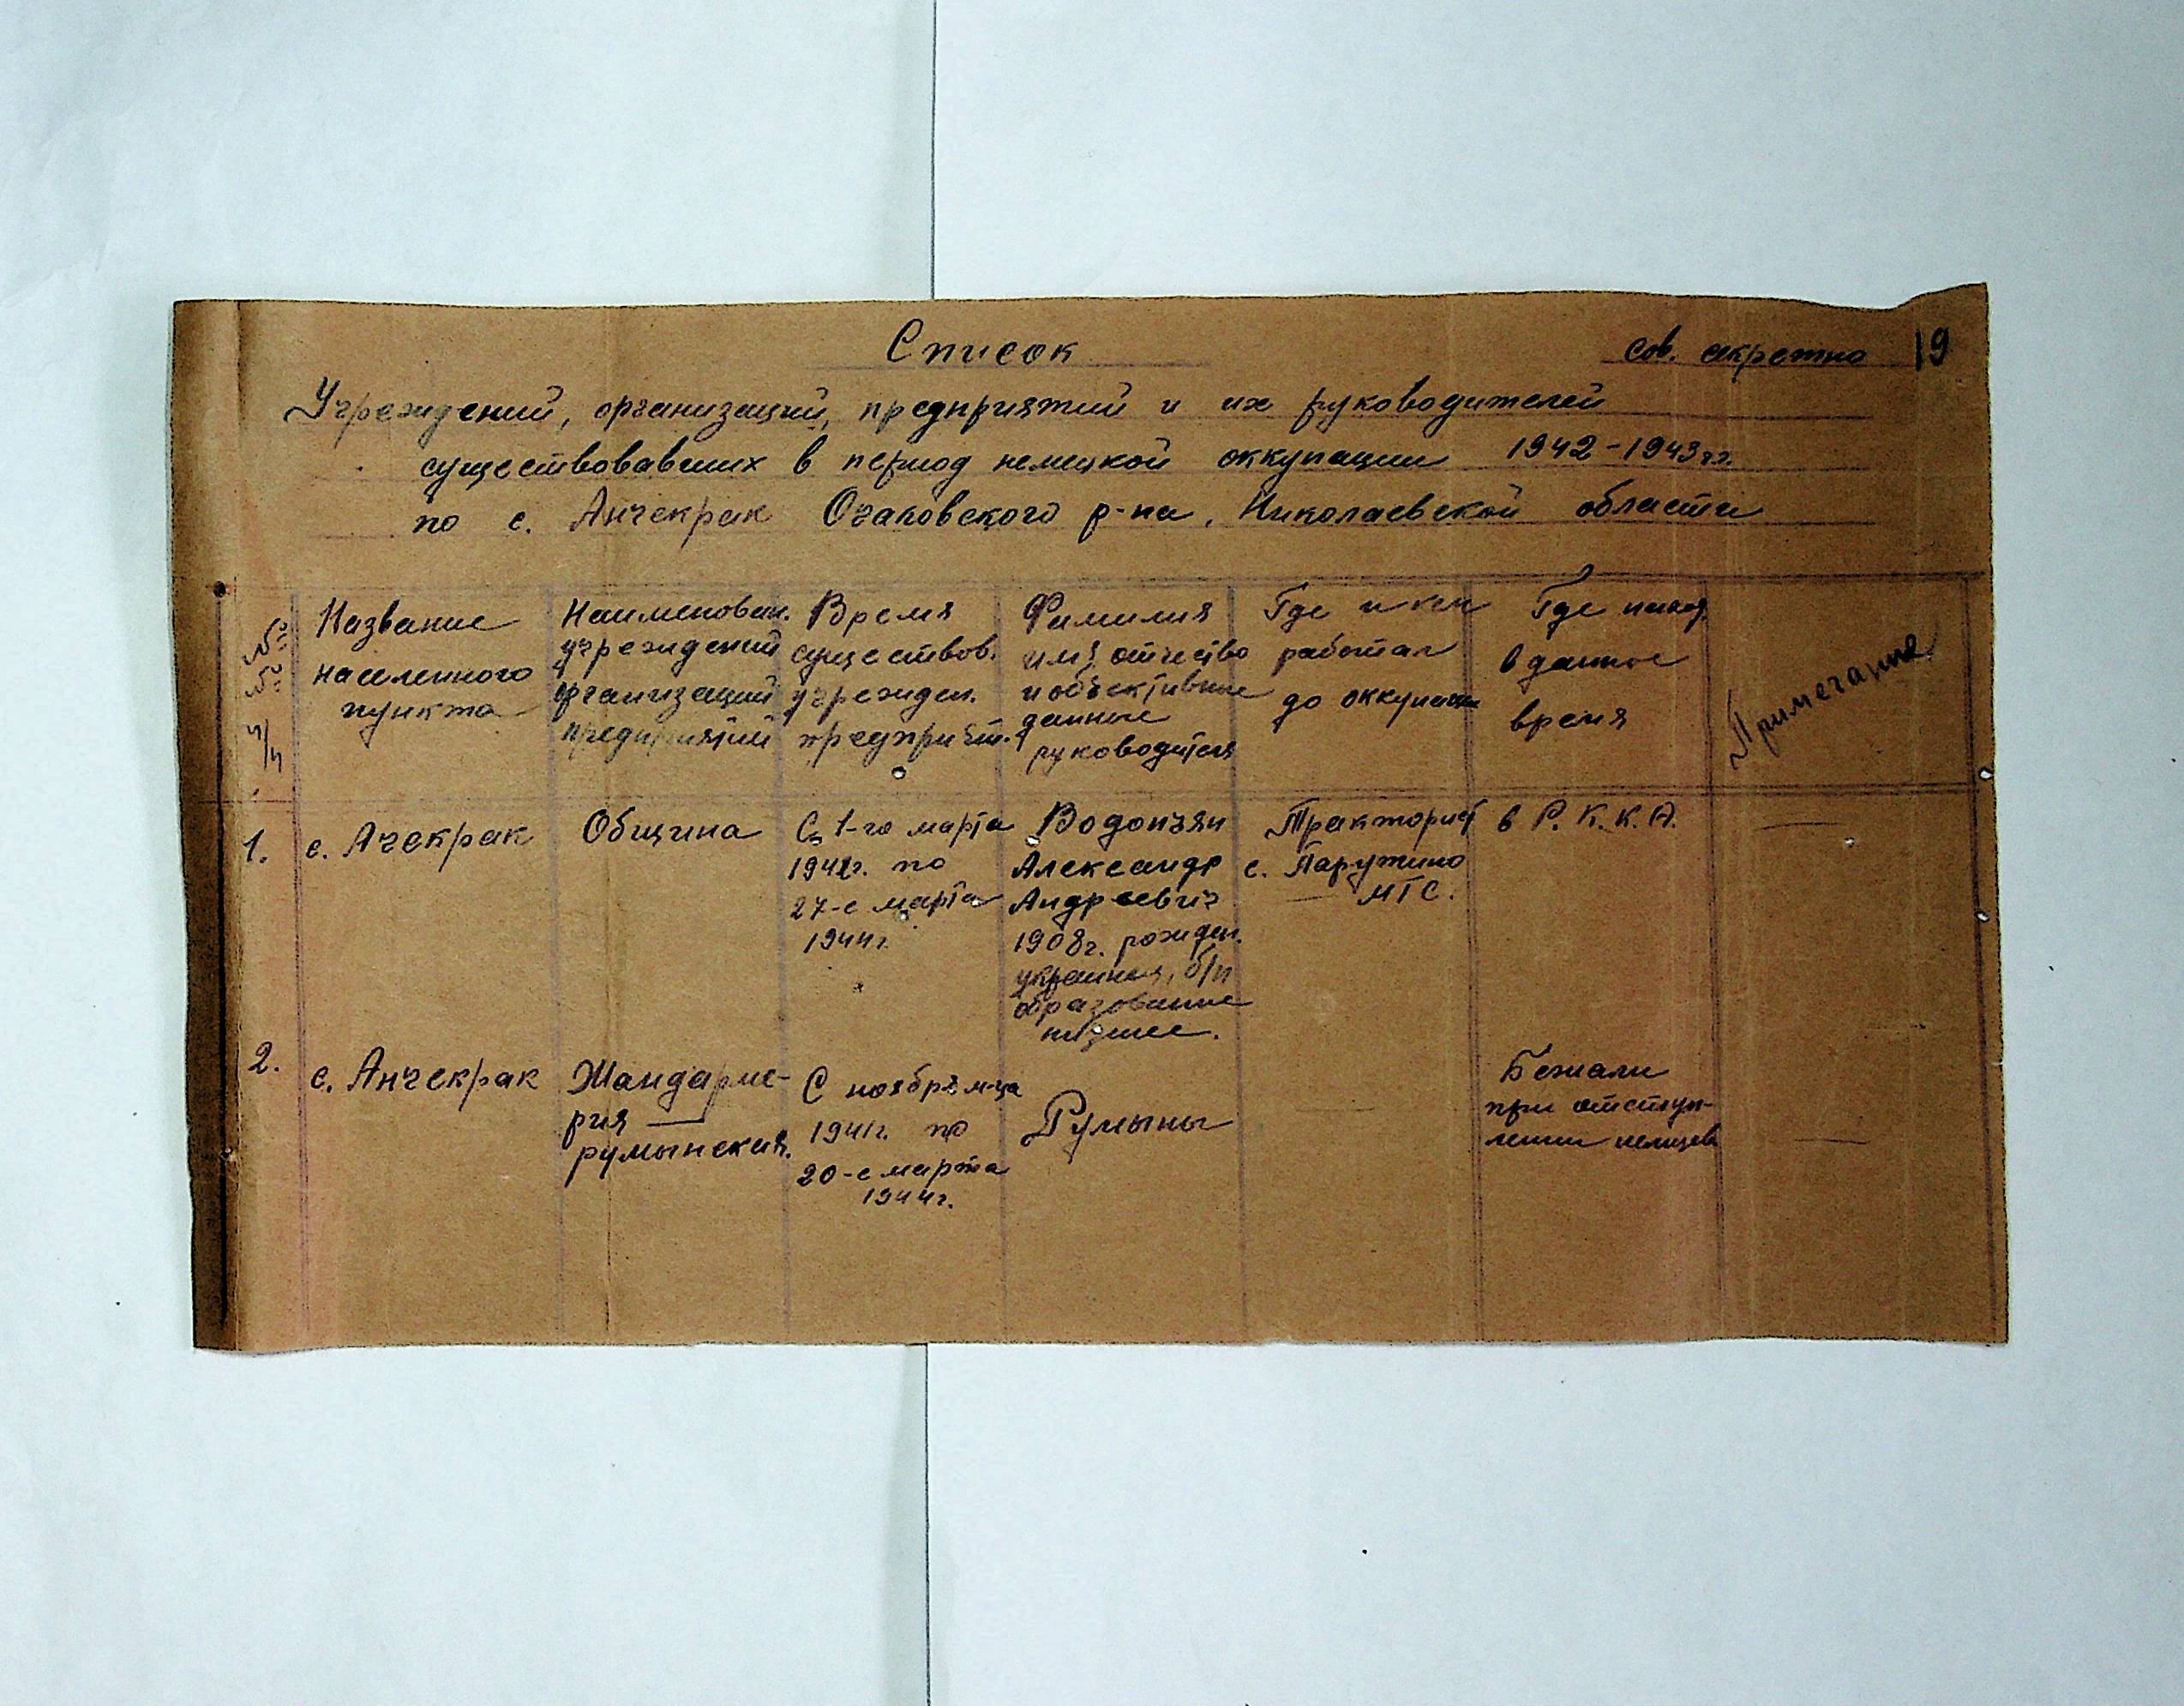 Список
сов. секретно 19
Учреждений, организаций, предприятий и их руководителей
существовавших в период немецкой оккупации 1942-1943 гг.
по с. Анчекрак Очаковского р-на, Николаевской области
№ №
п/п
Название
населенного
пункта
Наименован.
учреждений
организаций
предприятий
Время
существов.
учрежден.
предприят.
Фамилия
имя, отчество
и объективные
данные
руководителя
Где и кем
работал
до оккупации
Где наход.
в данное
время
Примечание
1.
с. Ачекрак
Община
С 1-го марта
по
27-е марта
1944г.
Водопьян
Александр
Андреевич
1908г. рожден.
украинец, б/п
образование
низшее.
Тракторист
с. Парутино
МТС.
в Р. К. К. А.
2.
с. Анчекрак
Жандарме-
рия —
румынская.
С ноября м-ца
1941г. по
20-е марта
1944г.
Румыны
Бежали
при отступ-
лении немцев